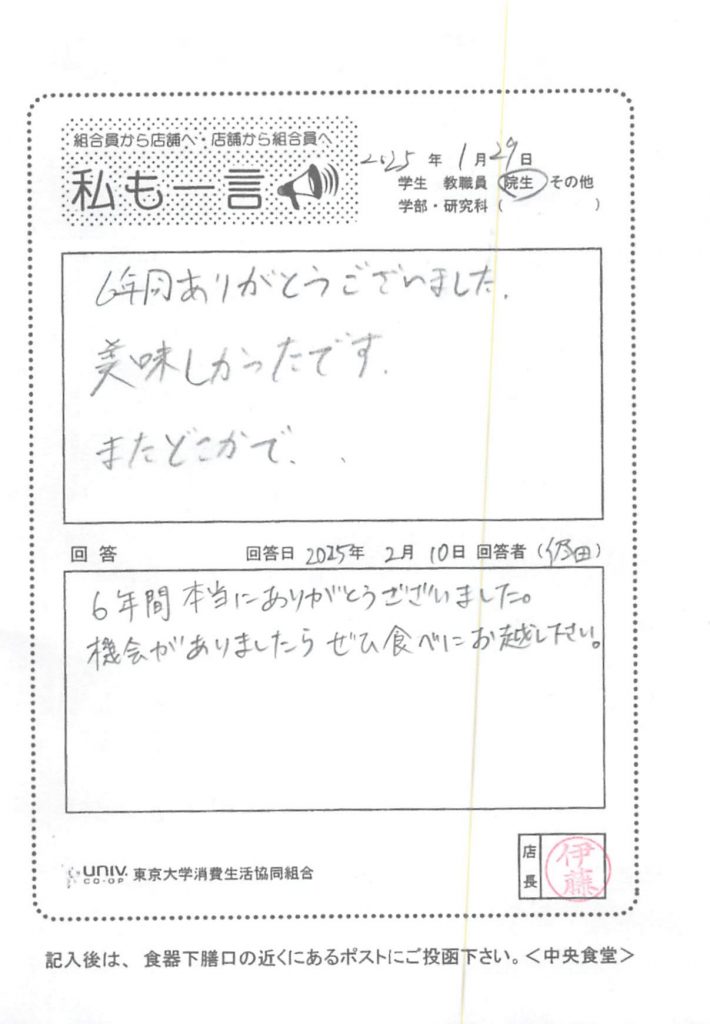 組合員から店舗へ・店舗から組合員へ
私も一言
2025年 1月29日
学生 教職員 院生 その他
学部・研究科（ ）
6年间ありがとうございました.
美味しかったです.
またどこかで. .
回答 回答日 2025年 2月 10日 回答者（ 田）
6年間 本当にありがとうございました。
機会がありましたら ぜひ食べにお越し下さい。
店長
伊藤
univ. CO-OP 東京大学消費生活協同組合
記入後は、食器下膳口の近くにあるポストにご投函下さい。＜中央食堂＞